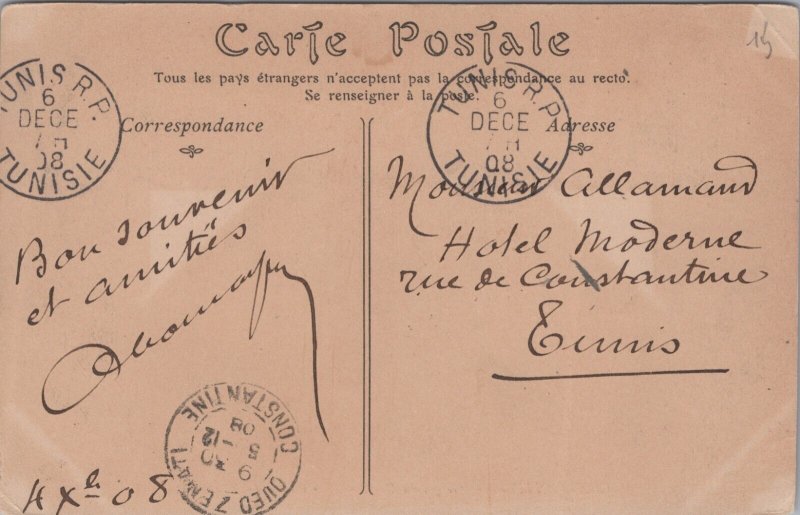 Carte Postale
Tous les pays étrangers n'acceptent pas la correspondance au recto.
Se renseigner à la poste.
TUNIS R.P.
6
DECE
08
TUNISIE
TUNIS R.P.
6
DECE
08
TUNISIE
Correspondance
Bon souvenir
et amitiés
4 Xbre 08
OUED ZENATI
9 30
5 -12
08
CONSTANTINE
Adresse
Monsieur Allamand
Hotel Moderne
rue de Constantine
Tunis